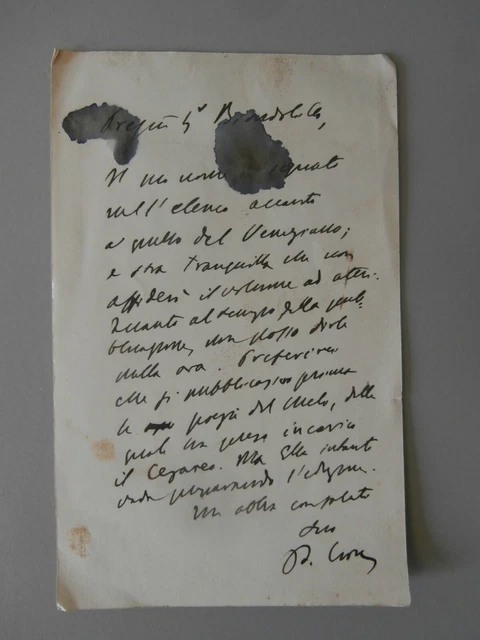 Pregiat. Sr Brondolillo,
Il suo nome è segnato
sull'elenco accanto
a quello del Venegiano;
e stia tranquillo che non
affiderò il volume ad altri.
Quanto al tempo della pub-
blicazione, non posso dirle
nulla ora. Preferirei
che si pubblicassino prima
le poesie del Meli, delle
quali ha preso incarico
il Cesareo. Ma Ella intanto
vada preparando l'edizione.
Mi abbia con saluti
suo
B. Croce